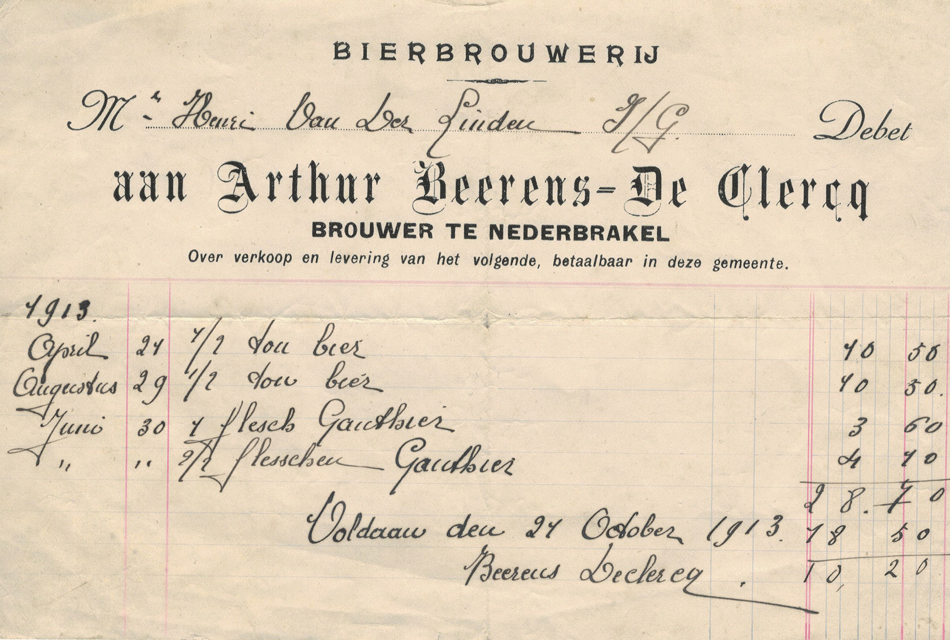 BIERBROUWERIJ
Mr Henri Van Der Linden Debet
aan Arthur Beerens-De Clercq
BROUWER TE NEDERBRAKEL
Over verkoop en levering van het volgende, betaalbaar in deze gemeente.
1913.
April 21 1/2 ton bier 10 50
Augustus 29 1/2 ton bier 10 50.
Juni 30 1 flesch Gauthier 3 60
" " 2/2 flesschen Gauthier 4 10
28.70
Voldaan den 21 October 1913. 18 50
Beerens Declercq. 10, 20